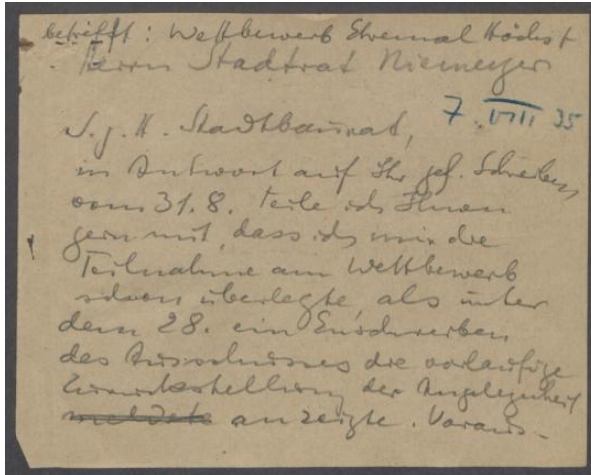 betrifft: Wettbewerb Ehrenmal Höchst
Herrn Stadtrat Niemeyer
7. VIII 35
S. g. H. Stadtbaurat,
in Antwort auf Ihr gef. Schreiben
vom 31. 8. teile ich Ihnen
gern mit, dass ich mir die
Teilnahme am Wettbewerb
schon überlegte als unter
dem 28. ein
des Ausschusses die vorläufige
Zurückstellung der Angelegenheit
meldete anzeigte. Voraus-